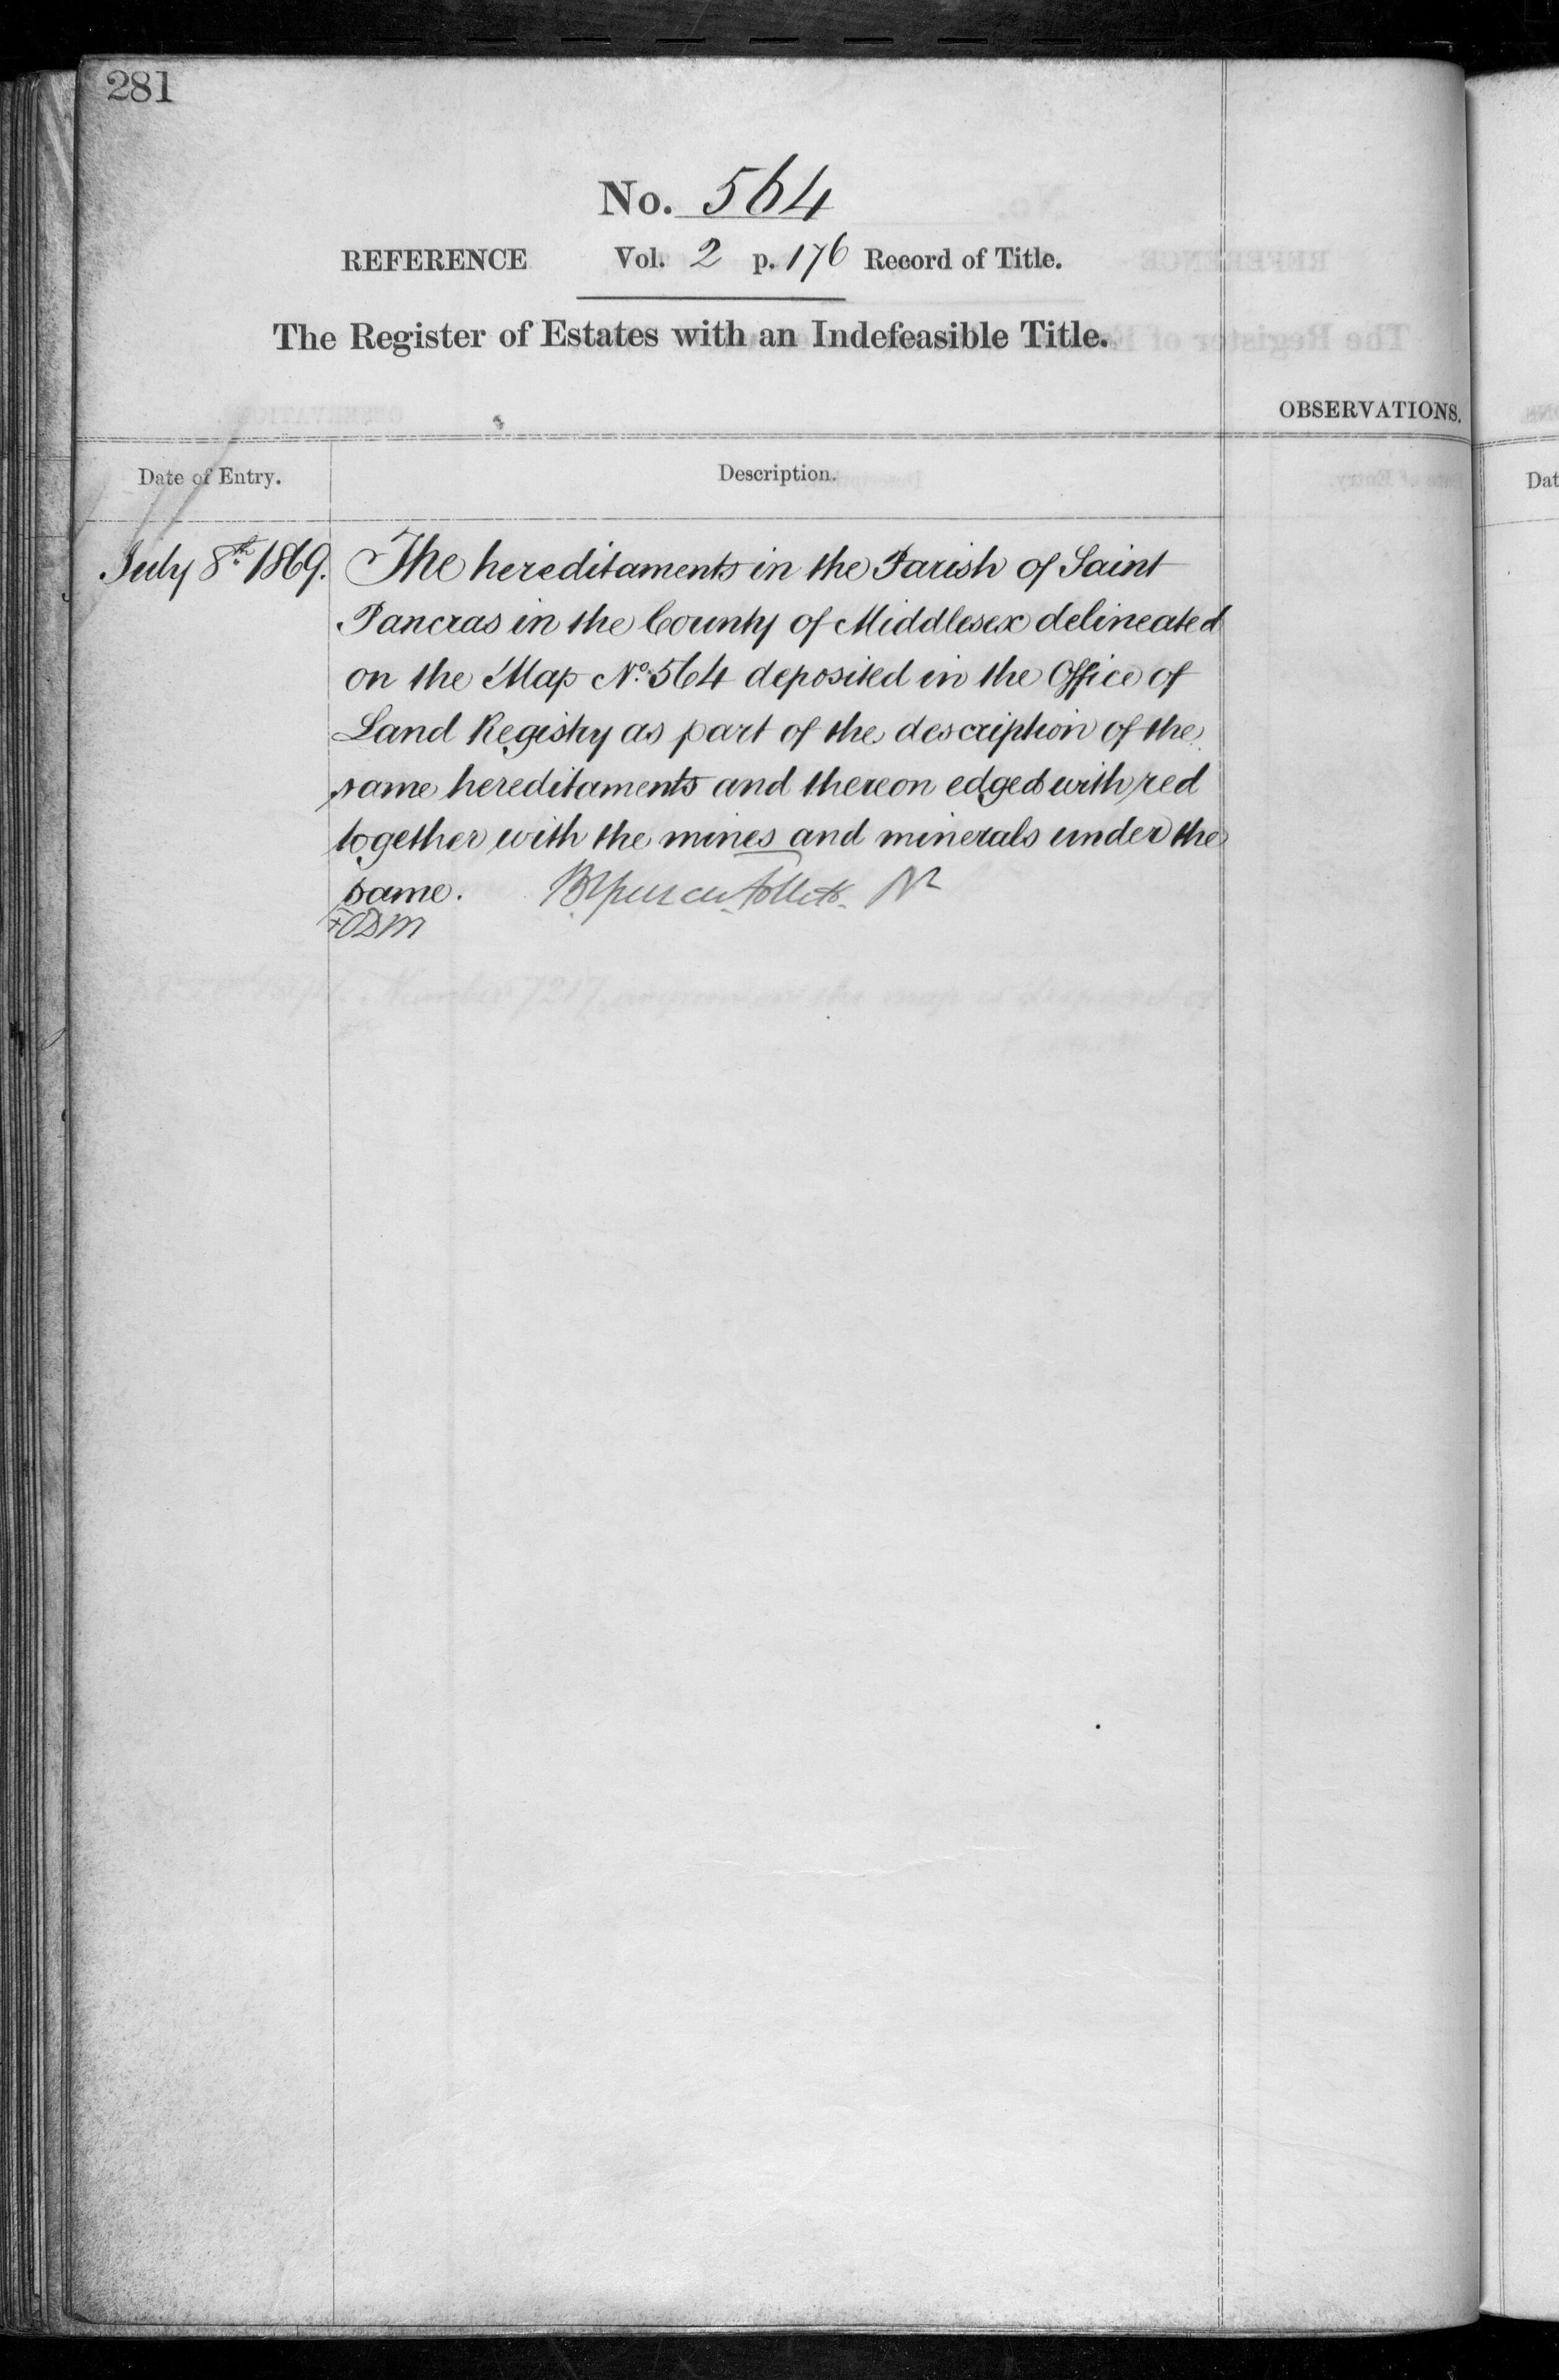 281
No. 564
REFERENCE Vol. 2 p. 176 Record of Title.
The Register of Estates with an Indefeasible Title.
OBSERVATIONS.
Date of Entry. Description.
Dat
July 8th 1869. The hereditaments in the Parish of Saint
Pancras in the County of Middlesex delineated
on the Map No. 564 deposited in the Office of
Land Registry as part of the description of the
same hereditaments and thereon edged with red
together with the mines and minerals under the
same.